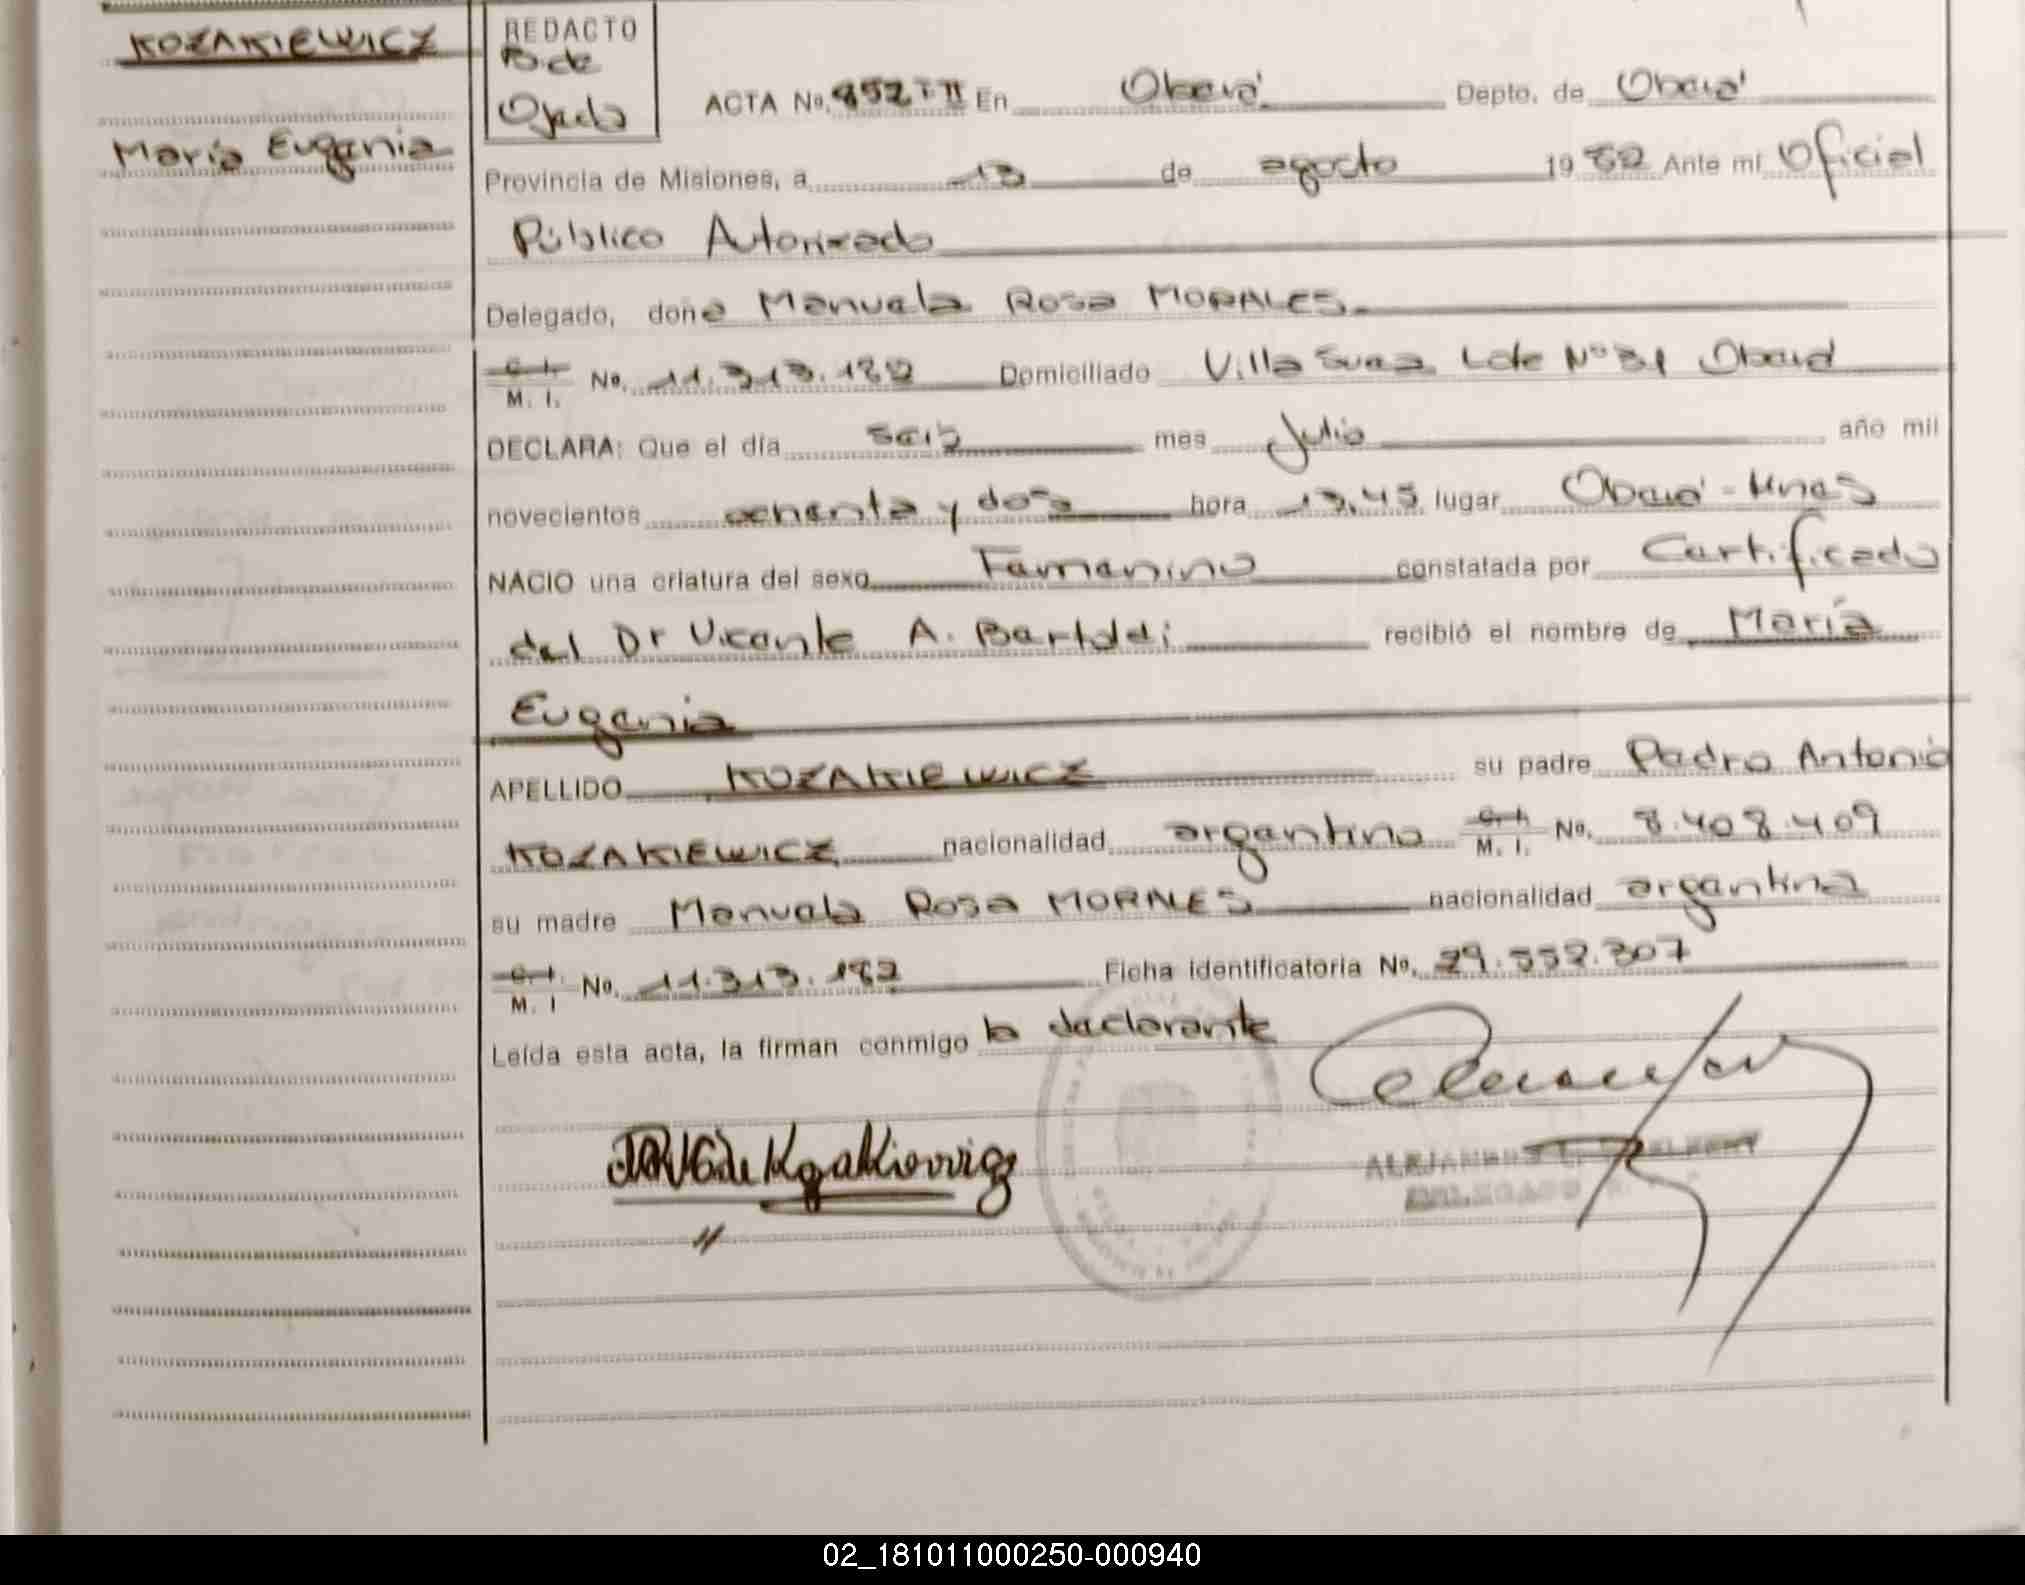 KOZAKIEWICZ
María Eugenia
REDACTO
B. de
Ojeda
ACTA No. 852 T II En Oberá Depto. de Oberá
Provincia de Misiones, a 13 de agosto 1982 Ante mi Oficial
Público Autorizado
Delegado, doña Manuela Rosa MORALES
C. I. M. I. No. 11.313.182 Domiciliado Villa Svea Lote Nº 31 Oberá
DECLARA: Que el día seis mes Julio año mil
novecientos ochenta y dos hora 13,45 lugar Oberá - Mnes
NACIO una criatura del sexo Femenino constatada por Certificado
del Dr Vicente A. Bartoldi recibió el nombre de María
Eugenia
APELLIDO KOZAKIEWICZ su padre Pedro Antonio
KOZAKIEWICZ nacionalidad argentino C. I. M. I. No. 8.408.409
su madre Manuela Rosa MORALES nacionalidad argentina
C. I. M. I No. 11.313.182 Ficha identificatoria No. 29.552.307
Leída esta acta, la firman conmigo la declarante
de Kozakievvicz
02_181011000250-000940